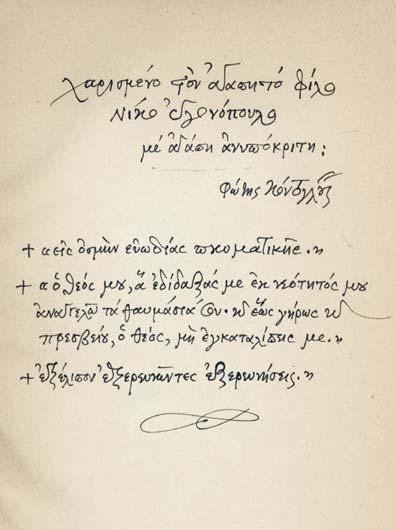 χαρισμένο στὸν ἀγαπητό φίλο
Νίκο Ἐγγονόπουλο
μέ ἀγάπη ἀνυπόκριτη:
Φώτης Κόντογλους
+ «εἰς ὀσμὴν εὐωδίας πνευματικῆς.»
+ «ὁ Θεός μου, ἃ ἐδίδαξάς με ἐκ νεότητός μου
ἀναγγελῶ τά θαυμάσιά Σου. καὶ ἕως γήρως καὶ
πρεσβείου, ὁ Θεός, μὴ ἐγκαταλίπης με.»
+ «ἐξέλιπον ἐξερευνῶντες ἐξερευνήσεις.»